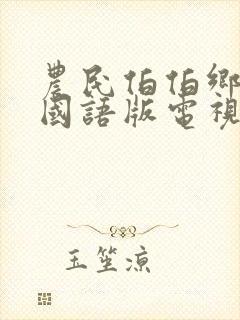 農民伯伯鄉
國語版電視
玉笙涼